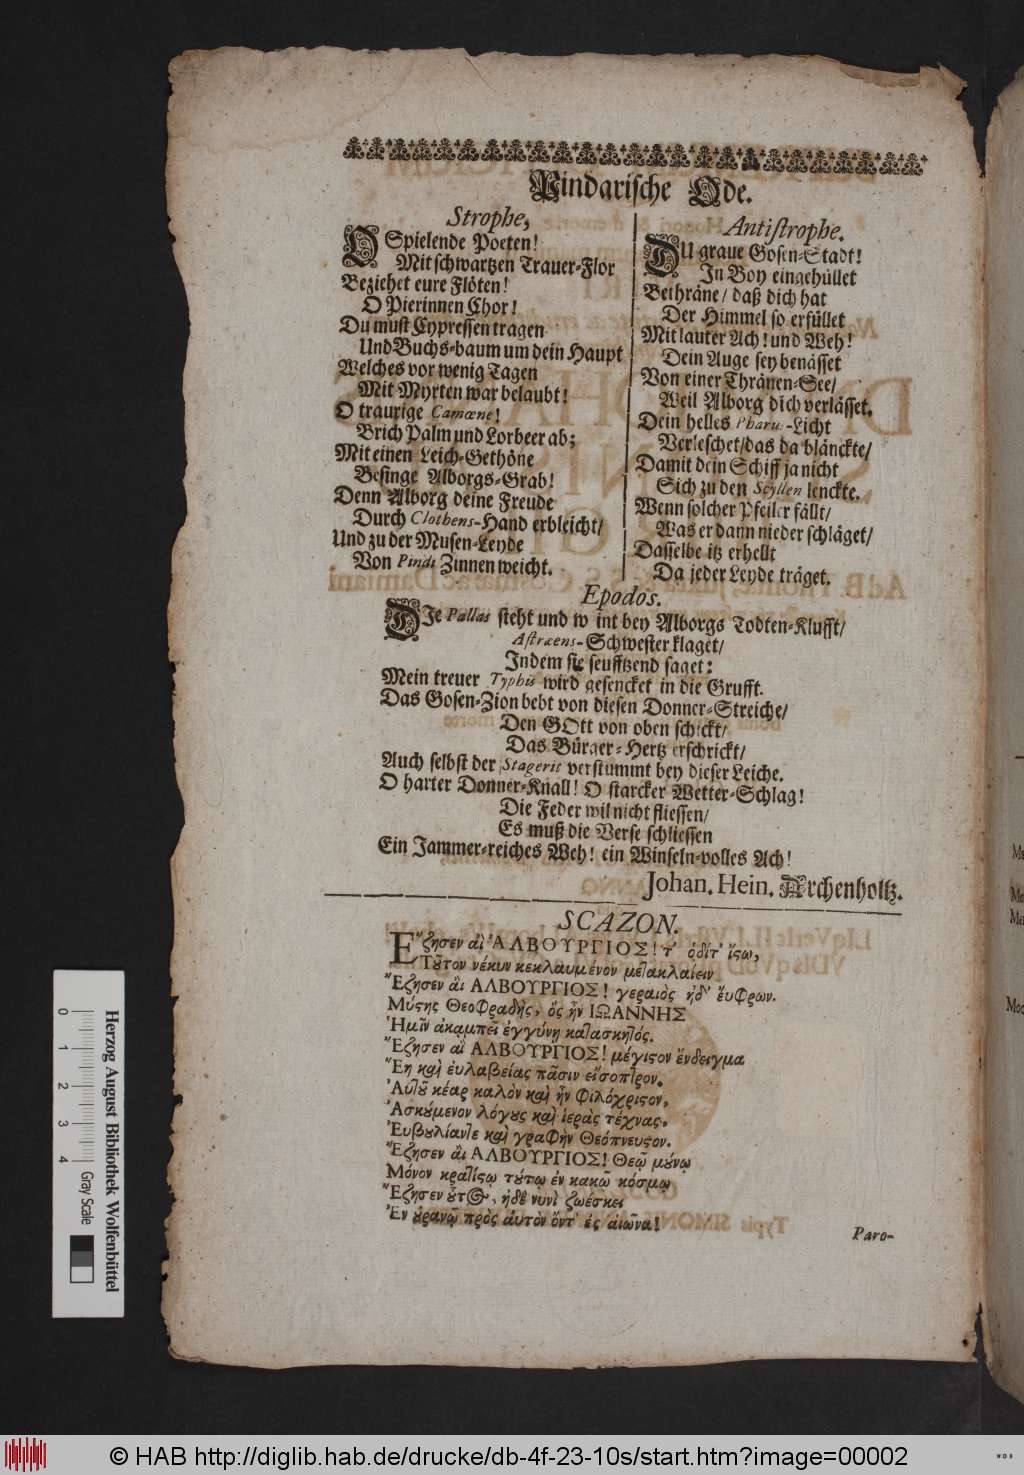 Pindarische Ode.
Strophe,
O Spielende Poeten!
Mit schwartzen Trauer-Flor
Beziehet eure Flöten!
O Pierinnen Chor!
Du must Cypressen tragen
Und Buchs-baum um dein Haupt
Welches vor wenig Tagen
Mit Myrten war belaubt!
O traurige Camœne!
Brich Palm und Lorbeer ab;
Mit einen Leich-Gethöne
Besinge Alborgs-Grab!
Denn Alborg deine Freude
Durch Clothens-Hand erbleicht/
Und zu der Musen-Leyde
Von Pindi Zinnen weicht.
Antistrophe.
DU graue Gosen-Stadt!
In Boy eingehüllet
Bethräne/ daß dich hat
Der Himmel so erfüllet
Mit lauter Ach! und Weh!
Dein Auge sey benässet
Von einer Thränen-See/
Weil Alborg dich verlässet.
Dein helles Pharus-Licht
Verleschet/das da blänckte/
Damit dein Schiff ja nicht
Sich zu den Scyllen lenckte.
Wenn solcher Pfeiler fällt/
Was er dann nieder schläget/
Dasselbe itz erhellt
Da jeder Leyde träget.
Epodos.
DIe Pallas steht und w int bey Alborgs Todten-Klufft/
Astræens-Schwester klaget/
Indem sie seufftzend saget:
Mein treuer Typhis wird gesencket in die Grufft.
Das Gosen-Zion bebt von diesen Donner-Streiche/
Den GOtt von oben schickt/
Das Bürger-Hertz erschrickt/
Auch selbst der Stagerit verstummt bey dieser Leiche.
O harter Donner-Knall! O starcker Wetter-Schlag!
Die Feder wil nicht fliessen/
Es muß die Verse schliessen
Ein Jammer-reiches Weh! ein Winseln-volles Ach!
Johan. Hein. Archenholtz.
SCAZON.
Ἔζησεν αἲ ἈΛΒΟΥΡΓΙΟΣ! τ' ὁδίτ' ἴσω,
Τοῦτον νέκυν κεκλαυμένον μετακλαίειν
Ἔζησεν αἲ ΑΛΒΟΥΡΓΙΟΣ! γεραιὸς ἠδ' ἔυφρων.
Μύσης Θεοφραδὴς, ὃς ἦν ΙΩΑΝΝΗΣ
Ἡμῖν ἀκαμπεῖ ἐγγύνῃ κατασκητός.
Ἔζησεν αἲ ΑΛΒΟΥΡΓΙΟΣ! μέγιστον ἔνδειγμα
Ἔη καὶ ἐυλαβείας πᾶσιν εἴσοπτρον.
Ἀυτοῦ κέαρ καλὸν καὶ ἦν Φιλόχριστον,
Ἀσκούμενον λόγους καὶ ἱερὰς τέχνας.
Ἐυβουλίαντε καὶ γραφὴν Θεόπνευστον.
Ἔζησεν ἂι ΑΛΒΟΥΡΓΙΟΣ! Θεῷ μούνῳ
Μόνον κρατίστῳ τούτῳ ἐν κακῶ κόσμῳ
Ἔζησεν οὗτος, ἠδὲ νυνὶ ζωέσκει
Ἐν οὐρανῷ πρὸς ἀυτὸν ὄντ' ἐς ἀιῶνα!
Paro-
Herzog August Bibliothek Wolfenbüttel
0 1 2 3 4
Gray Scale
© HAB http://diglib.hab.de/drucke/db-4f-23-10s/start.htm?image=00002